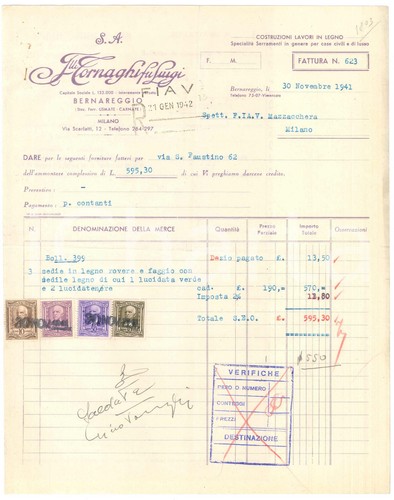 1203
S. A.
F.lli Tornaghi fu Luigi
Capitale Sociale L. 150.000 - Interamente versato
BERNAREGGIO
(Staz. Ferr. USMATE - CARNATE)
MILANO
Via Scarlatti, 12 - Telefono 264-297
COSTRUZIONI LAVORI IN LEGNO
Specialità Serramenti in genere per case civili e di lusso
F. M.
FATTURA N. 623
Bernareggio, li 30 Novembre 1941
Telefono 73-07 Vimercate
FIAV
21 GEN 1942
R
Spett. F.I.A.V. Mazzacchera
Milano
DARE per le seguenti forniture fattevi per via S. Faustino 62
dell'ammontare complessivo di L. 595,30 di cui Vi preghiamo darcene credito.
Preventivo -
Pagamento : p. contanti
N. DENOMINAZIONE DELLA MERCE Quantità Prezzo Parziale Importo Totale Osservazioni
Boll. 399 Dazio pagato £. 13,50
3 sedie in legno rovere e faggio con
sedile legno di cui 1 lucidata verde
e 2 lucidate nere cad. £ 190,= 570,=
Imposta 2% 11,80
Totale S.E.O. £. 595,30
30 NOV 1941
30 NOV 1941
$550
VERIFICHE
PESO O NUMERO
CONTEGGI
PREZZI
DESTINAZIONE
Saldata